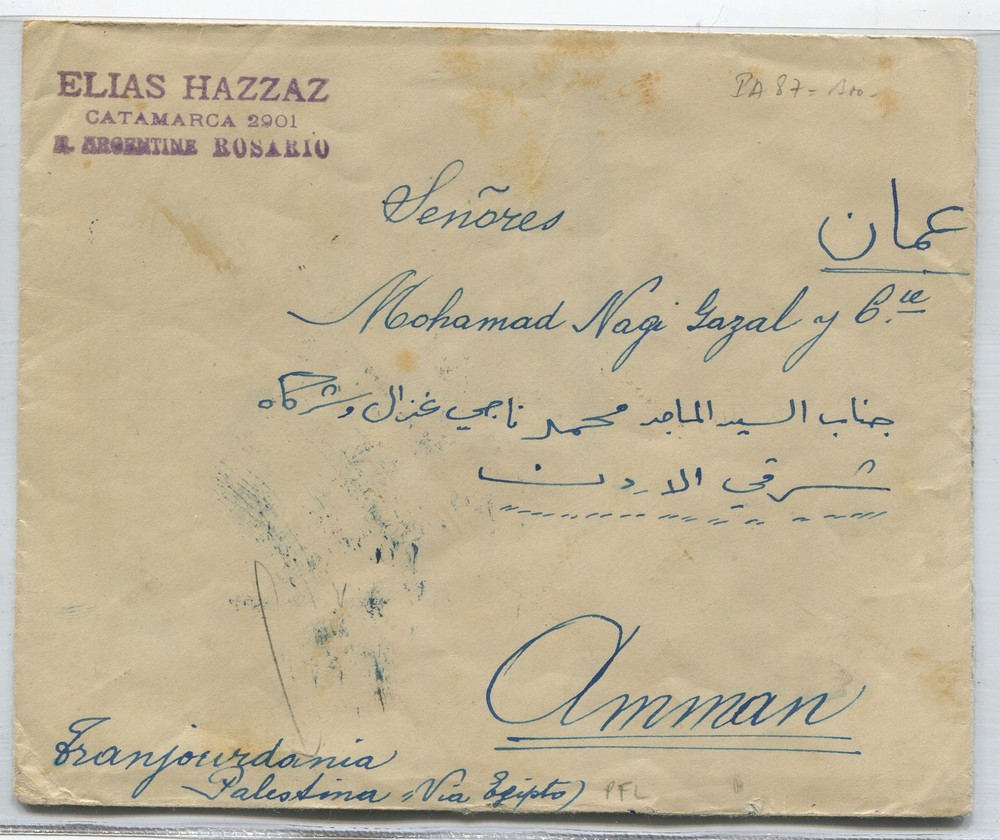 ELIAS HAZZAZ
CATAMARCA 2901
R. ARGENTINE ROSARIO
PA 87 -
Señores
عمان
Mohamad Nagi Gazal y Cie
جناب السيد الماجد محمد ناجي غزال وشركاه
شرقي الاردن
Amman
Tranjourdania
Palestina (Via Egipto)
PFL